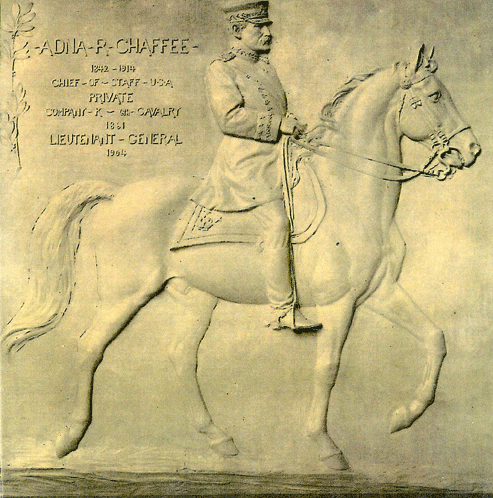 -ADNA-R-CHAFFEE-
1842-1914
CHIEF-OF-STAFF-U-S-A
PRIVATE
COMPANY-K-6TH-CAVALRY
1861
LIEUTENANT-GENERAL
1904